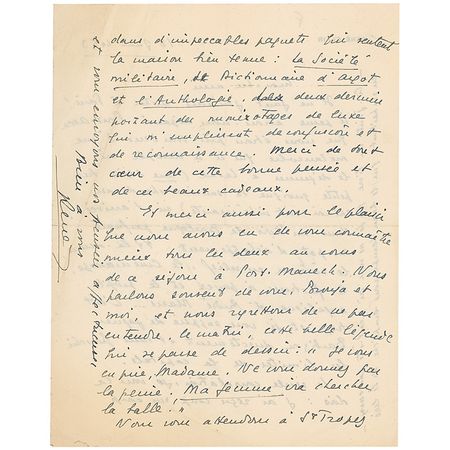 dans d'impeccables paquets qui sentent
la maison bien tenue : la Société
militaire, le Dictionnaire d'argot
et l'Anthologie, deux derniers
portant des numérotages de luxe
qui m'emplissent de confusion et
de reconnaissance. Merci de tout
cœur de cette bonne pensée et
de ces beaux cadeaux.
Et merci aussi pour le plaisir
que nous avons eu de vous connaître
mieux tous les deux au cours
de ce séjour à Port-Manech. Nous
parlons souvent de vous, et
moi, et nous regrettons de ne pas
entendre, le matin, cette belle légende
qui se passe de dessin : " Je vous
en prie, Madame. Ne vous donnez pas
la peine. Ma femme ira chercher
la balle. "
Nous vous attendons à St Tropez
et vous envoyons nos pensées affectueuses
Bien à vous
René